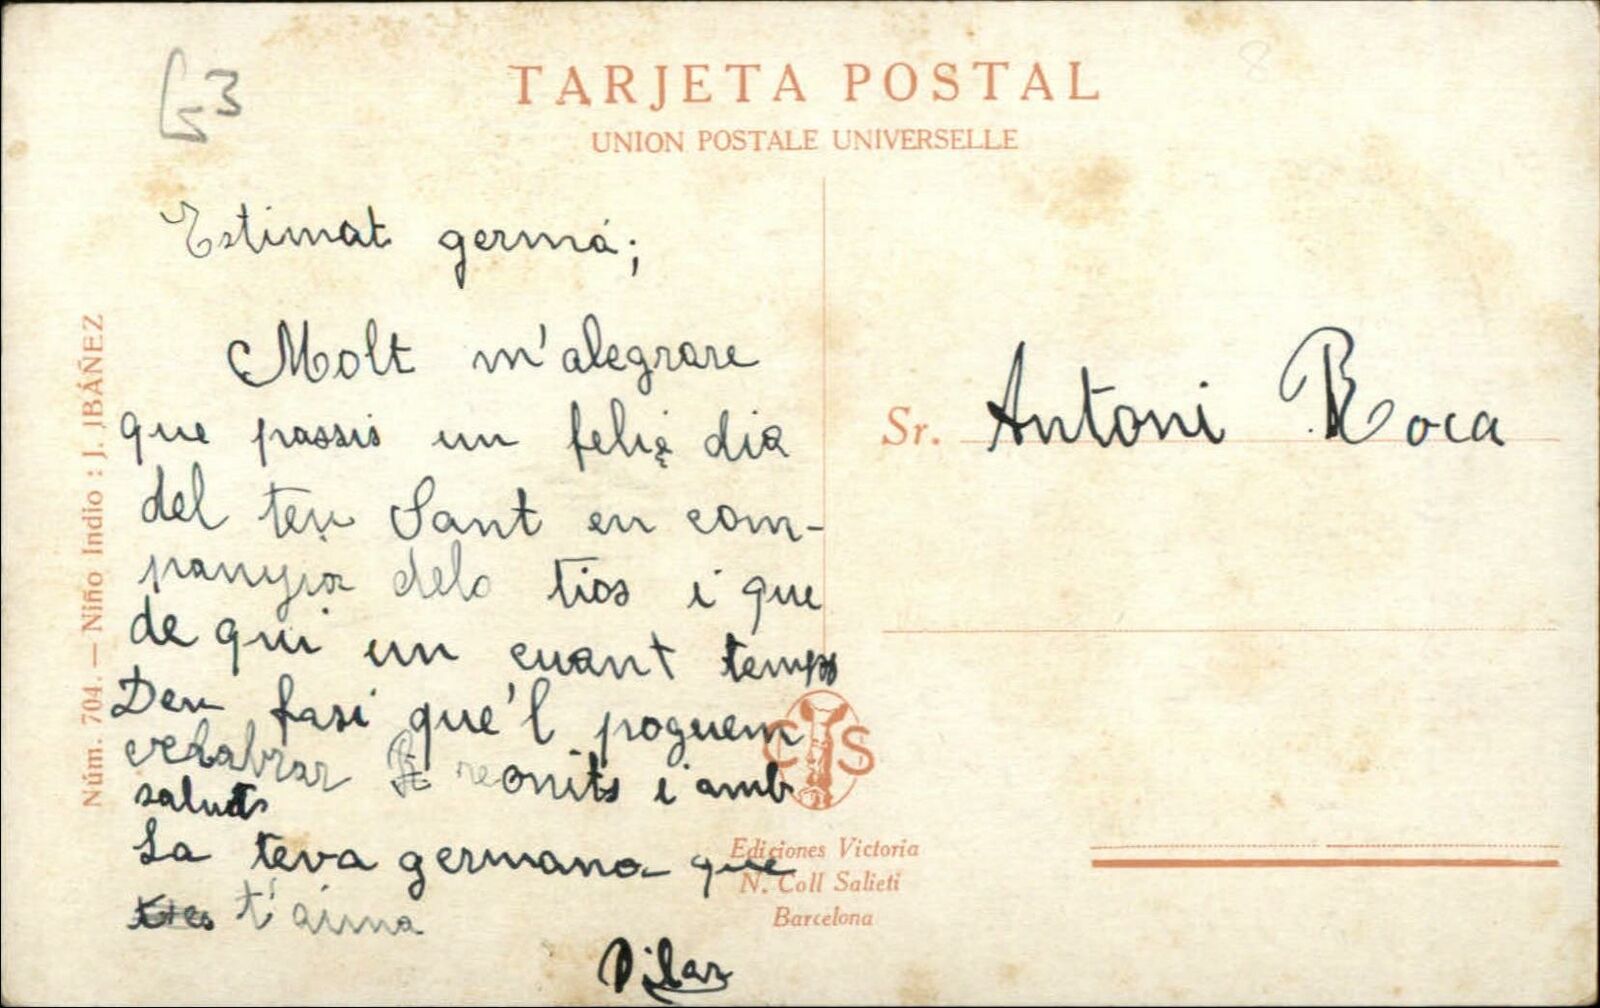 G3
8
TARJETA POSTAL
UNION POSTALE UNIVERSELLE
Estimat germá;
Molt m'alegrare
que passis un feliç dia
del teu Sant en com-
panyia dels tios i que
de qui un cuant temps
Deu fasi que'l poguem
celabrar reonits i amb
saluts
La teva germana que
t'aima
Pilar
Sr. Antoni Roca
CS
Ediciones Victoria
N. Coll Salieti
Barcelona
Núm. 704. — Niño Indio : J. IBÁÑEZ